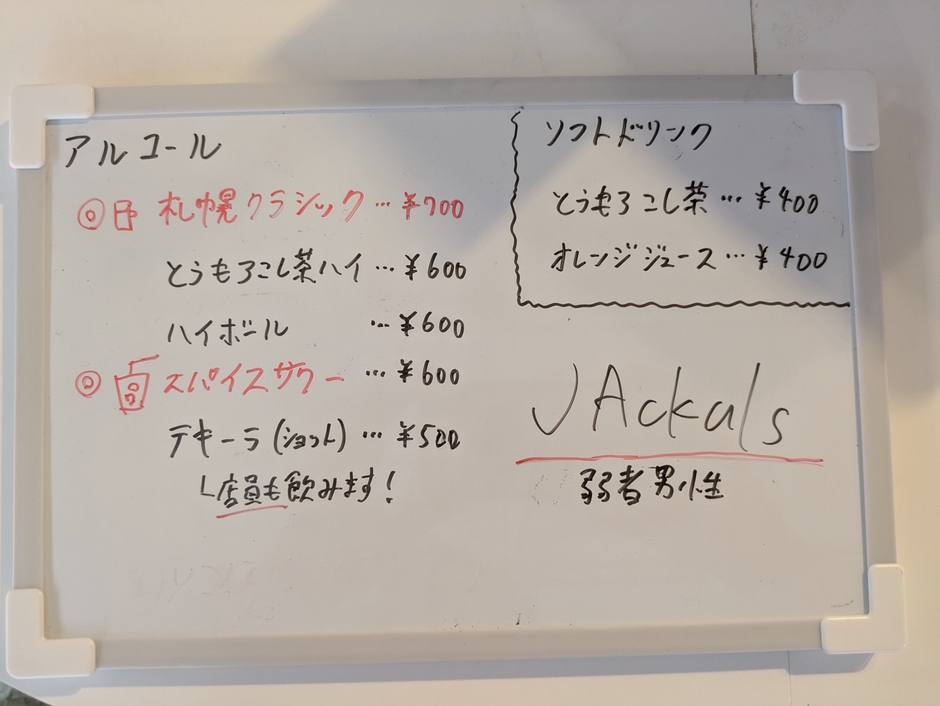 アルコール
◎札幌クラシック…¥700
とうもろこし茶ハイ…¥600
ハイボール …¥600
◎スパイスサワー…¥600
テキーラ(ショット)…¥500
└店員も飲みます!
ソフトドリンク
とうもろこし茶…¥400
オレンジジュース…¥400
JAckals
弱者男性